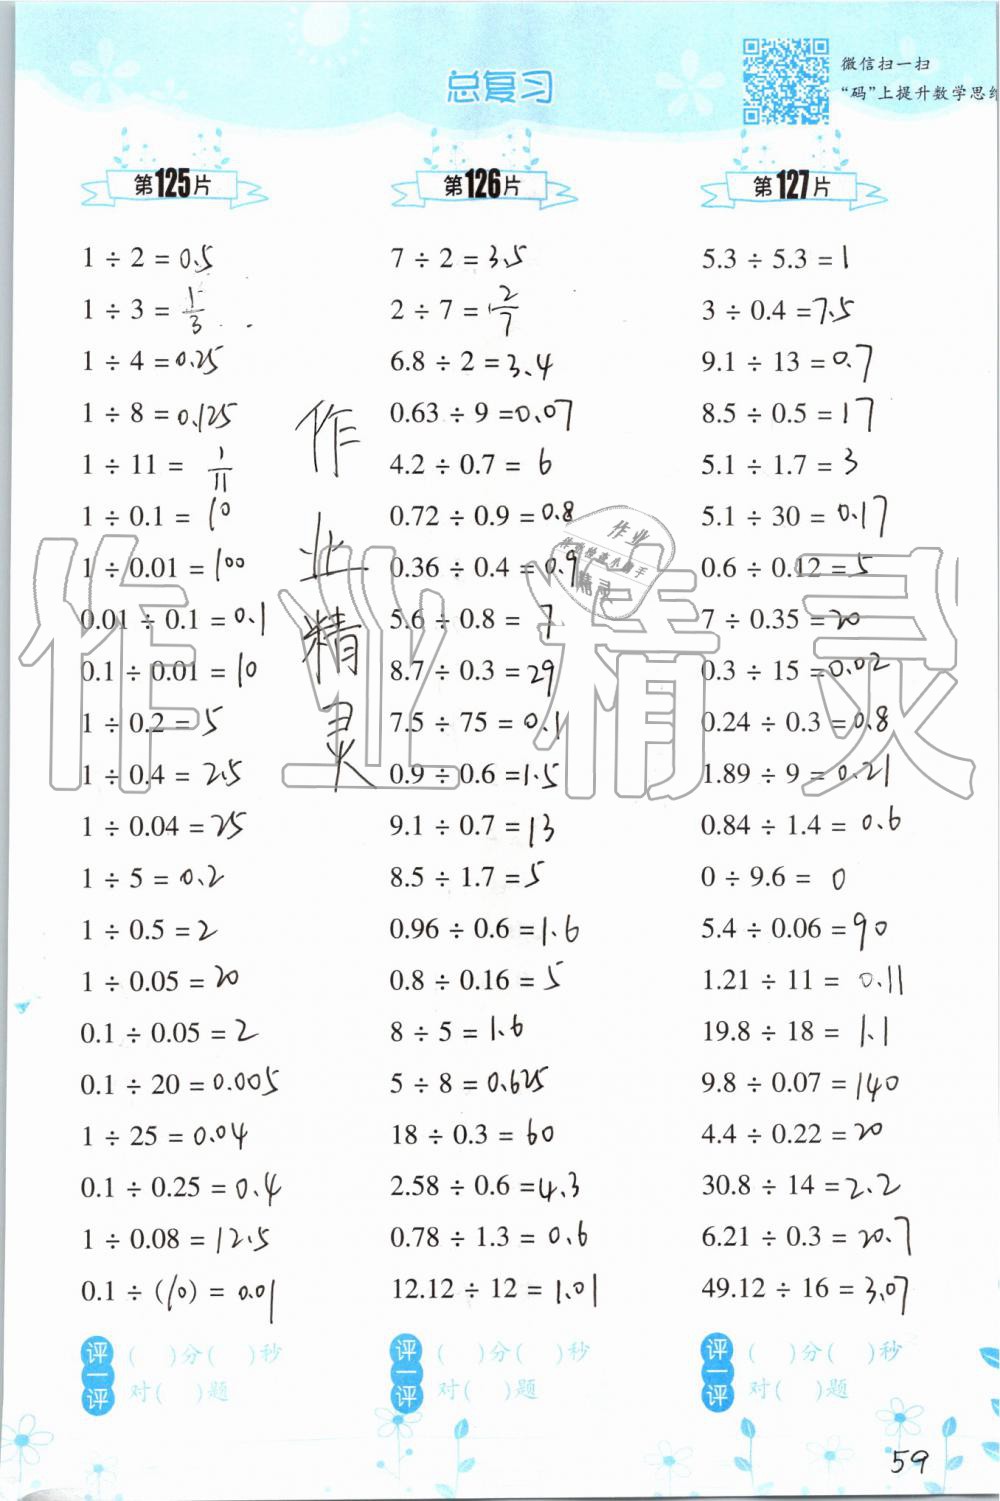 总复习
微信扫一扫
“码”上提升数学思维
第125片
1 ÷ 2 = 0.5
1 ÷ 3 = 1/3
1 ÷ 4 = 0.25
1 ÷ 8 = 0.125
1 ÷ 11 = 1/11
1 ÷ 0.1 = 10
1 ÷ 0.01 = 100
0.01 ÷ 0.1 = 0.1
0.1 ÷ 0.01 = 10
1 ÷ 0.2 = 5
1 ÷ 0.4 = 2.5
1 ÷ 0.04 = 25
1 ÷ 5 = 0.2
1 ÷ 0.5 = 2
1 ÷ 0.05 = 20
0.1 ÷ 0.05 = 2
0.1 ÷ 20 = 0.005
1 ÷ 25 = 0.04
0.1 ÷ 0.25 = 0.4
1 ÷ 0.08 = 12.5
0.1 ÷ (10) = 0.01
评一评
( )分( )秒
对( )题
作业精灵
第126片
7 ÷ 2 = 3.5
2 ÷ 7 = 2/7
6.8 ÷ 2 = 3.4
0.63 ÷ 9 = 0.07
4.2 ÷ 0.7 = 6
0.72 ÷ 0.9 = 0.8
0.36 ÷ 0.4 = 0.9
5.6 ÷ 0.8 = 7
8.7 ÷ 0.3 = 29
7.5 ÷ 75 = 0.1
0.9 ÷ 0.6 = 1.5
9.1 ÷ 0.7 = 13
8.5 ÷ 1.7 = 5
0.96 ÷ 0.6 = 1.6
0.8 ÷ 0.16 = 5
8 ÷ 5 = 1.6
5 ÷ 8 = 0.625
18 ÷ 0.3 = 60
2.58 ÷ 0.6 = 4.3
0.78 ÷ 1.3 = 0.6
12.12 ÷ 12 = 1.01
评一评
( )分( )秒
对( )题
第127片
5.3 ÷ 5.3 = 1
3 ÷ 0.4 = 7.5
9.1 ÷ 13 = 0.7
8.5 ÷ 0.5 = 17
5.1 ÷ 1.7 = 3
5.1 ÷ 30 = 0.17
0.6 ÷ 0.12 = 5
7 ÷ 0.35 = 20
0.3 ÷ 15 = 0.02
0.24 ÷ 0.3 = 0.8
1.89 ÷ 9 = 0.21
0.84 ÷ 1.4 = 0.6
0 ÷ 9.6 = 0
5.4 ÷ 0.06 = 90
1.21 ÷ 11 = 0.11
19.8 ÷ 18 = 1.1
9.8 ÷ 0.07 = 140
4.4 ÷ 0.22 = 20
30.8 ÷ 14 = 2.2
6.21 ÷ 0.3 = 20.7
49.12 ÷ 16 = 3.07
评一评
( )分( )秒
对( )题
作业精灵
59